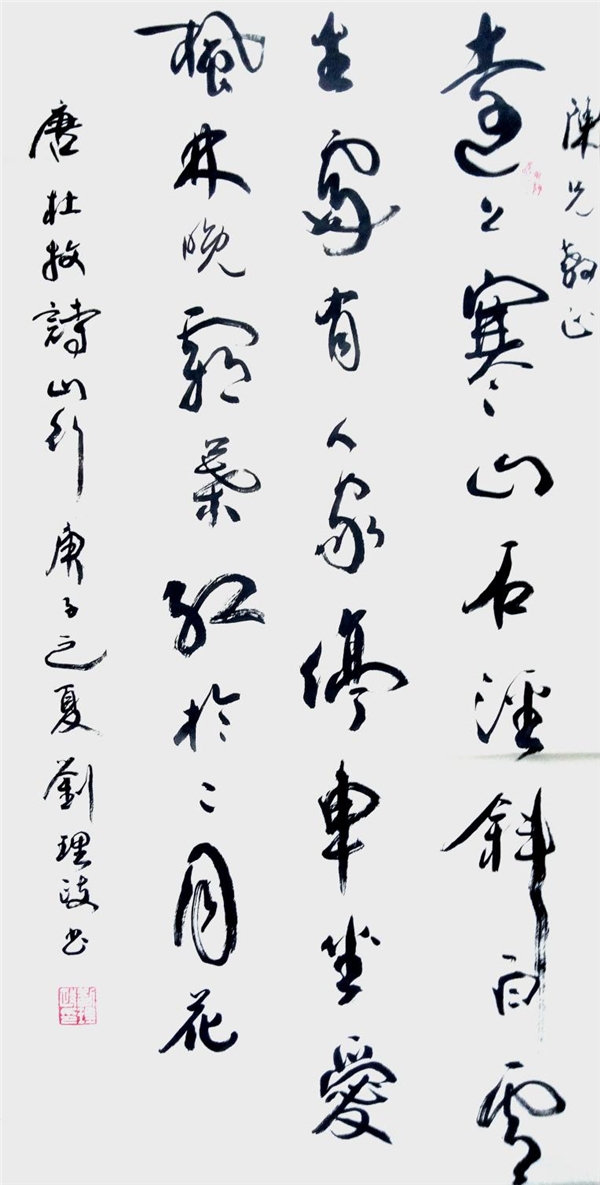 陳兄教正
遠上寒山石徑斜白雲
生處有人家停車坐愛
楓林晚霜葉紅於二月花
唐杜牧詩山行 庚子之夏劉理書